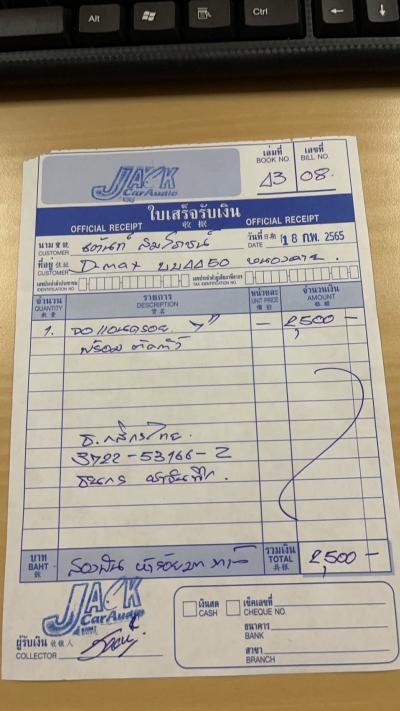 Alt
Ctrl
JACK
Car Audio
เล่มที่ เลขที่
BOOK NO. BILL NO.
13 08.
ใบเสร็จรับเงิน
收據
OFFICIAL RECEIPT OFFICIAL RECEIPT
นาม 寶號
CUSTOMER
วันที่ 日期
DATE 18 ก.พ. 2565
ที่อยู่ 住址
CUSTOMER D-max
เลขประจำตัวประชาชน
IDENTIFICATION NO.
เลขประจำตัวผู้เสียภาษีอากร
TAX IDENTIFICATION NO.
จำนวน รายการ หน่วยละ จำนวนเงิน
QUANTITY DESCRIPTION UNIT PRICE AMOUNT
1. จอแอนดรอย 7" - 2,500 -
พร้อม ติดตั้ง
ธ. กสิกรไทย
3722-53166-2
บาท
BAHT
สองพัน ห้าร้อยบาท
รวมเงิน
TOTAL
2,500 -
JACK
Car Audio
ผู้รับเงิน 收銀人
COLLECTOR
เงินสด
CASH
เช็คเลขที่
CHEQUE NO.
ธนาคาร
BANK
สาขา
BRANCH